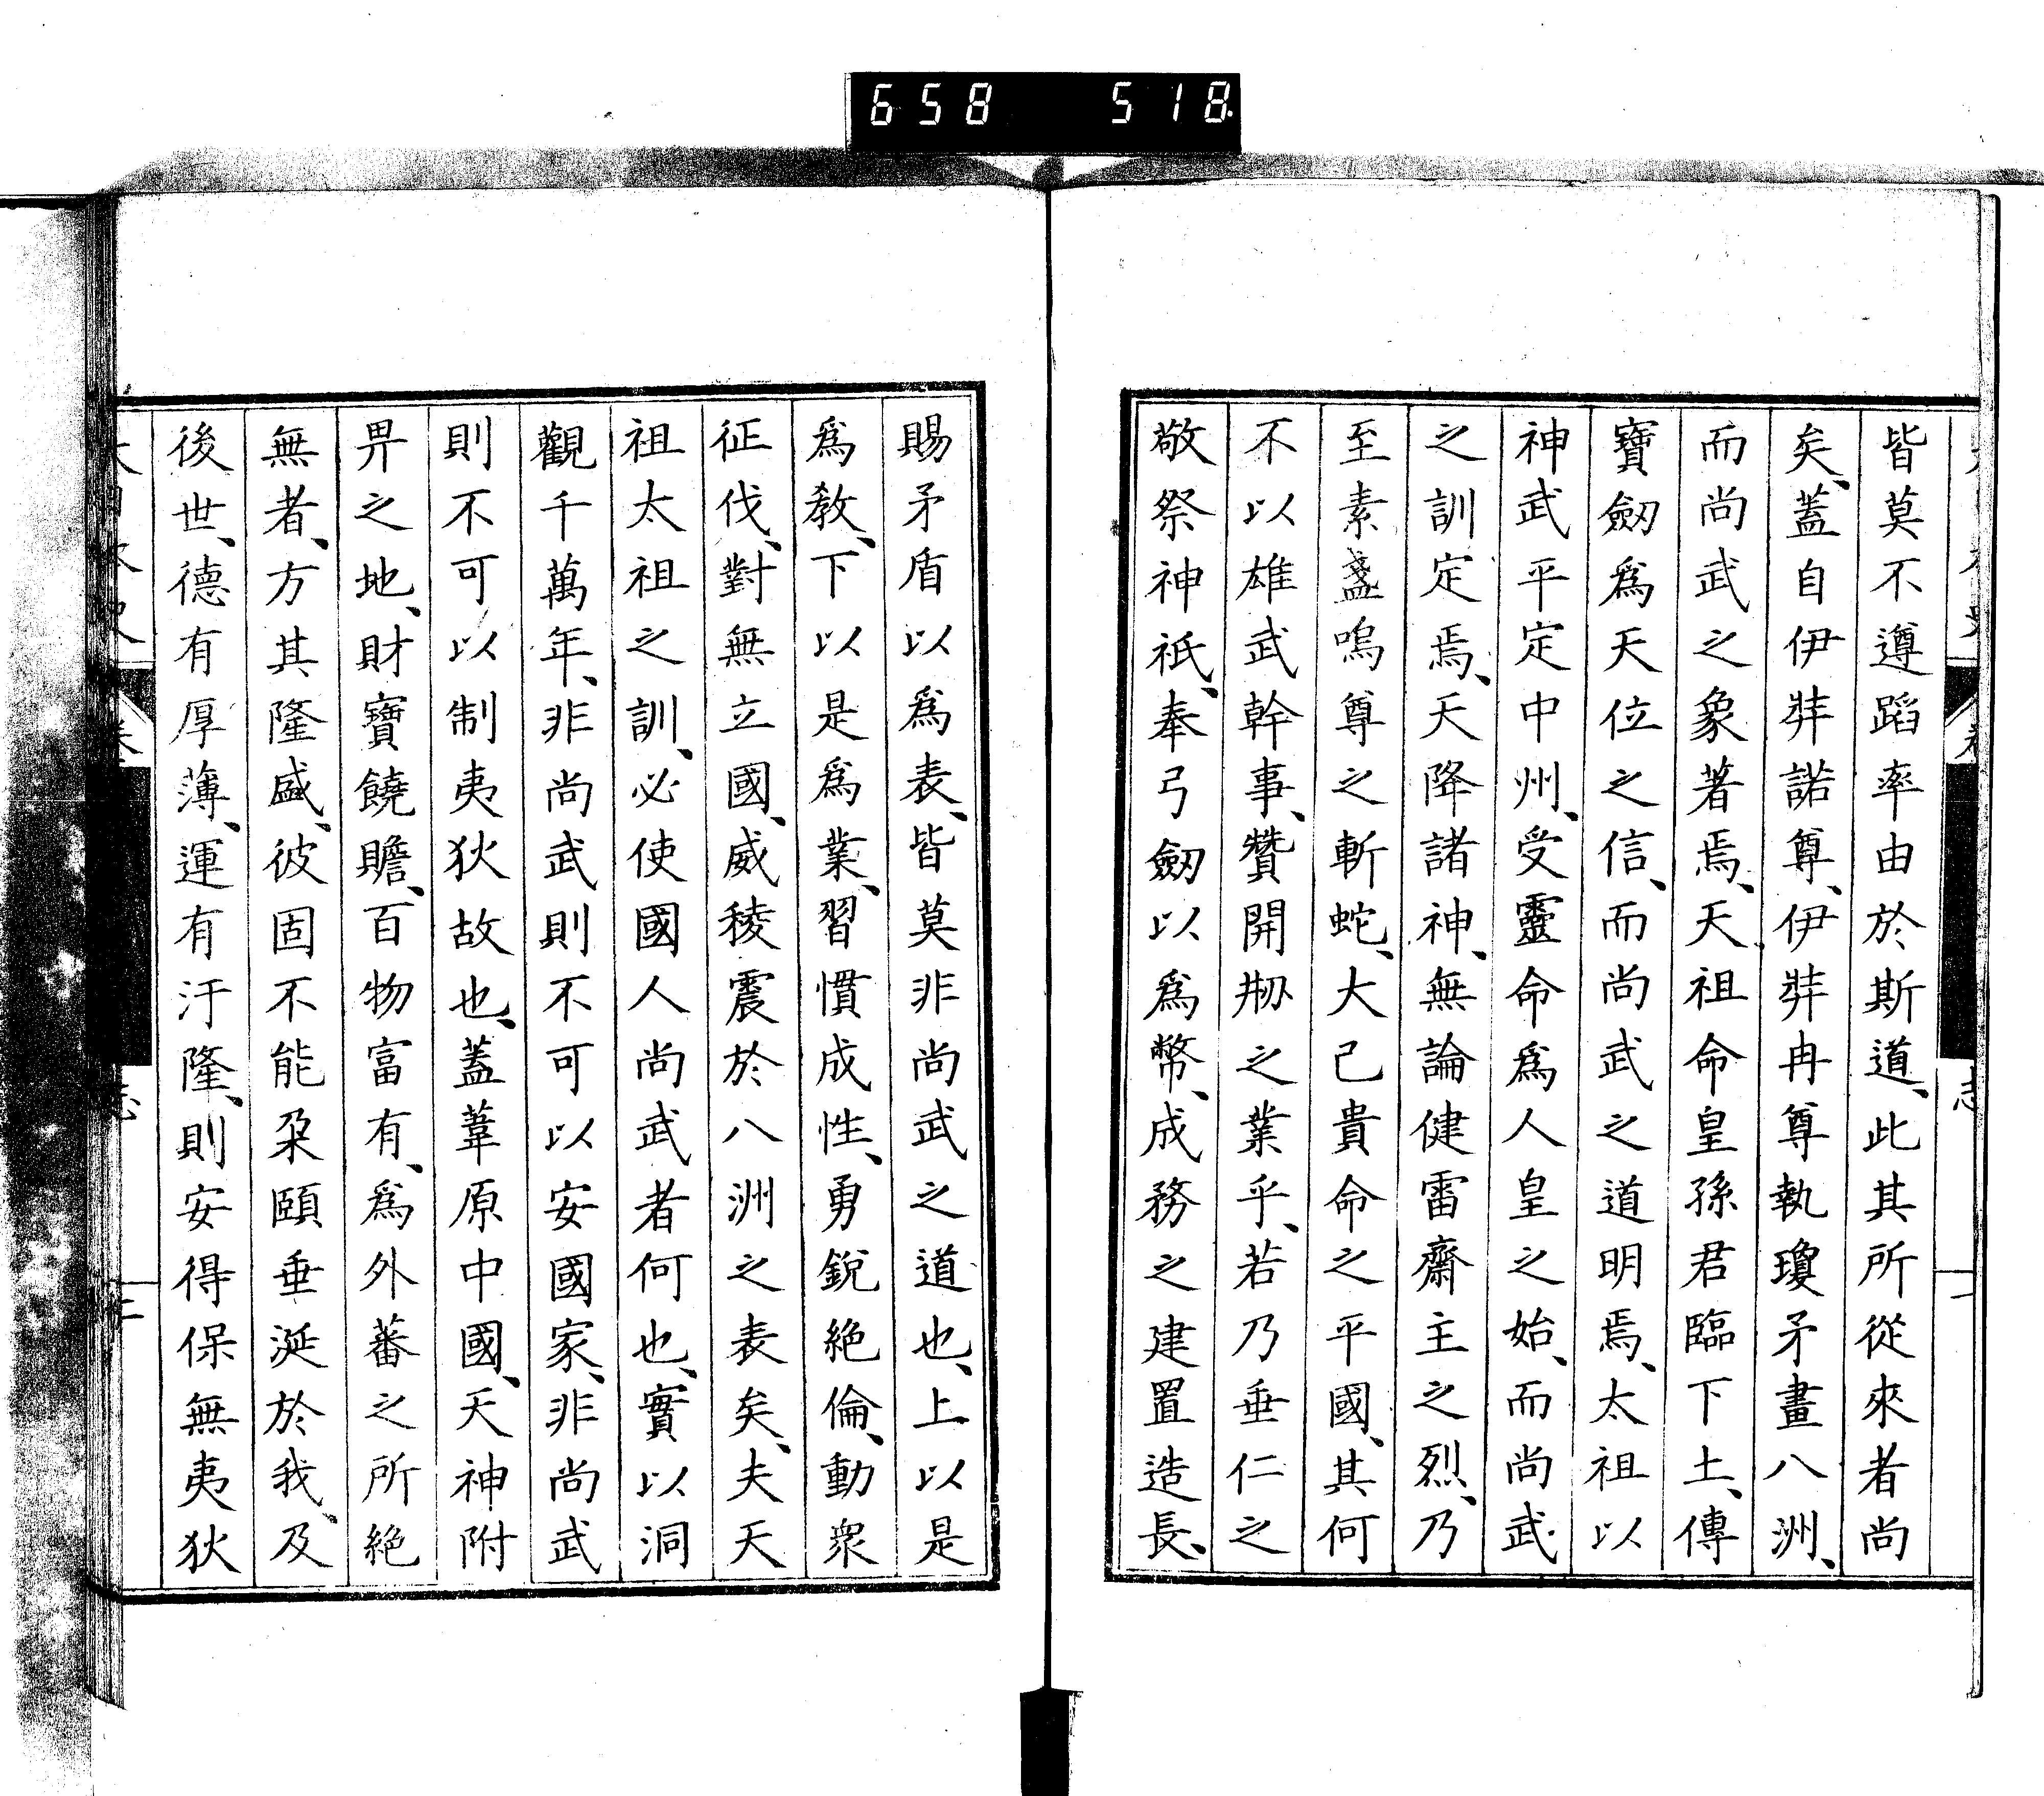 658 518
皆莫不遵蹈率由於斯道、此其所從來者尚
矣、蓋自伊弉諾尊、伊弉冉尊執瓊矛畫八洲、
而尚武之象著焉、天祖命皇孫君臨下土、傳
寶劔爲天位之信、而尚武之道明焉、太祖以
神武平定中州、受靈命爲人皇之始、而尚武
之訓定焉、天降諸神、無論健雷齋主之烈、乃
至素盞嗚尊之斬蛇、大己貴命之平國、其何
不以雄武幹事、贊開刱之業乎、若乃垂仁之
敬祭神祇、奉弓劔以爲幣、成務之建置造長、
賜矛盾以爲表、皆莫非尚武之道也、上以是
爲教、下以是爲業、習慣成性、勇銳絶倫、動衆
征伐、對無立國、威稜震於八洲之表矣、夫天
祖太祖之訓、必使國人尚武者何也、實以洞
觀千萬年、非尚武則不可以安國家、非尚武
則不可以制夷狄故也、蓋葦原中國、天神附
畀之地、財寶饒贍、百物富有、爲外蕃之所絶
無者、方其隆盛、彼固不能朶頤垂涎於我、及
後世、德有厚薄、運有汙隆、則安得保無夷狄